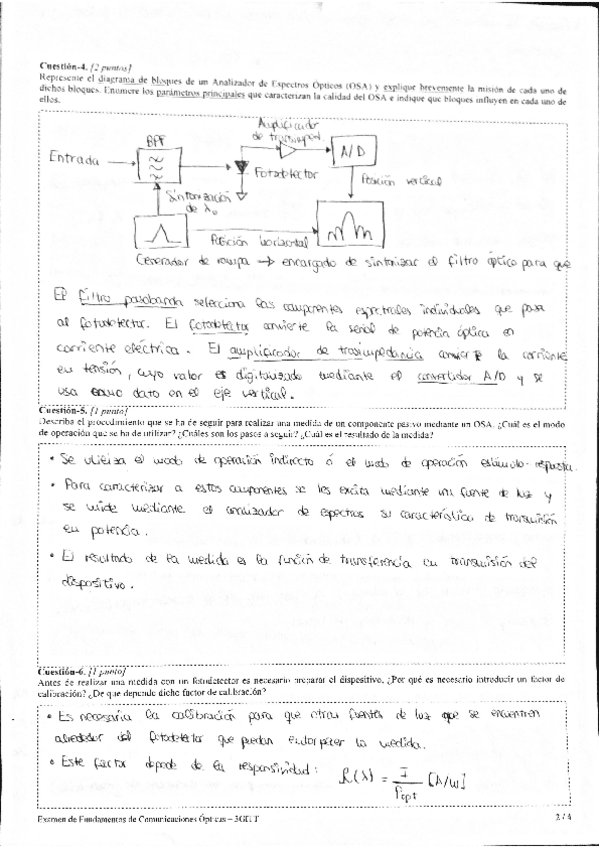 Cuestión-4. [2 puntos]
Represente el diagrama de bloques de un Analizador de Espectros Ópticos (OSA) y explique brevemente la misión de cada uno de
dichos bloques. Enumere los parámetros principales que caracterizan la calidad del OSA e indique que bloques influyen en cada uno de
ellos.
Amplificador
de trasimped.
BPF
Entrada
A/D
Fotodetector
Posición vertical
Sintonización
de λ₀
Posición horizontal
Generador de rampa → encargado de sintonizar el filtro óptico para que
El filtro pasobanda selecciona las componentes espectrales individuales que pasa
al fotodetector. El fotodetector convierte la señal de potencia óptica en
corriente eléctrica. El amplificador de trasimpedancia convierte la corriente
en tensión, cuyo valor es digitalizado mediante el convertidor A/D y se
usa como dato en el eje vertical.
Cuestión-5. [1 punto]
Describa el procedimiento que se ha de seguir para realizar una medida de un componente pasivo mediante un OSA. ¿Cuál es el modo
de operación que se ha de utilizar? ¿Cuáles son los pasos a seguir? ¿Cuál es el resultado de la medida?
• Se utiliza el modo de operación indirecto ó el modo de operación estímulo-respuesta.
• Para caracterizar a estos componentes se les excita mediante una fuente de luz y
se mide mediante el analizador de espectros su característica de transmisión
en potencia.
• El resultado de la medida es la función de transferencia en transmisión del
dispositivo.
Cuestión-6. [1 punto]
Antes de realizar una medida con un fotodetector es necesario preparar el dispositivo. ¿Por qué es necesario introducir un factor de
calibración? ¿De que depende dicho factor de calibración?
• Es necesaria la calibración para que otras fuentes de luz que se encuentren
alrededor del fotodetector que puedan entorpecer la medida.
• Este factor depende de la responsividad: R(λ) = I / Popt [A/W]
Examen de Fundamentos de Comunicaciones Ópticas – 3GITT
2 / 4